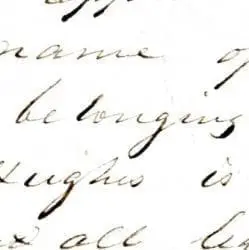 name of
belonging
Hughes is
all